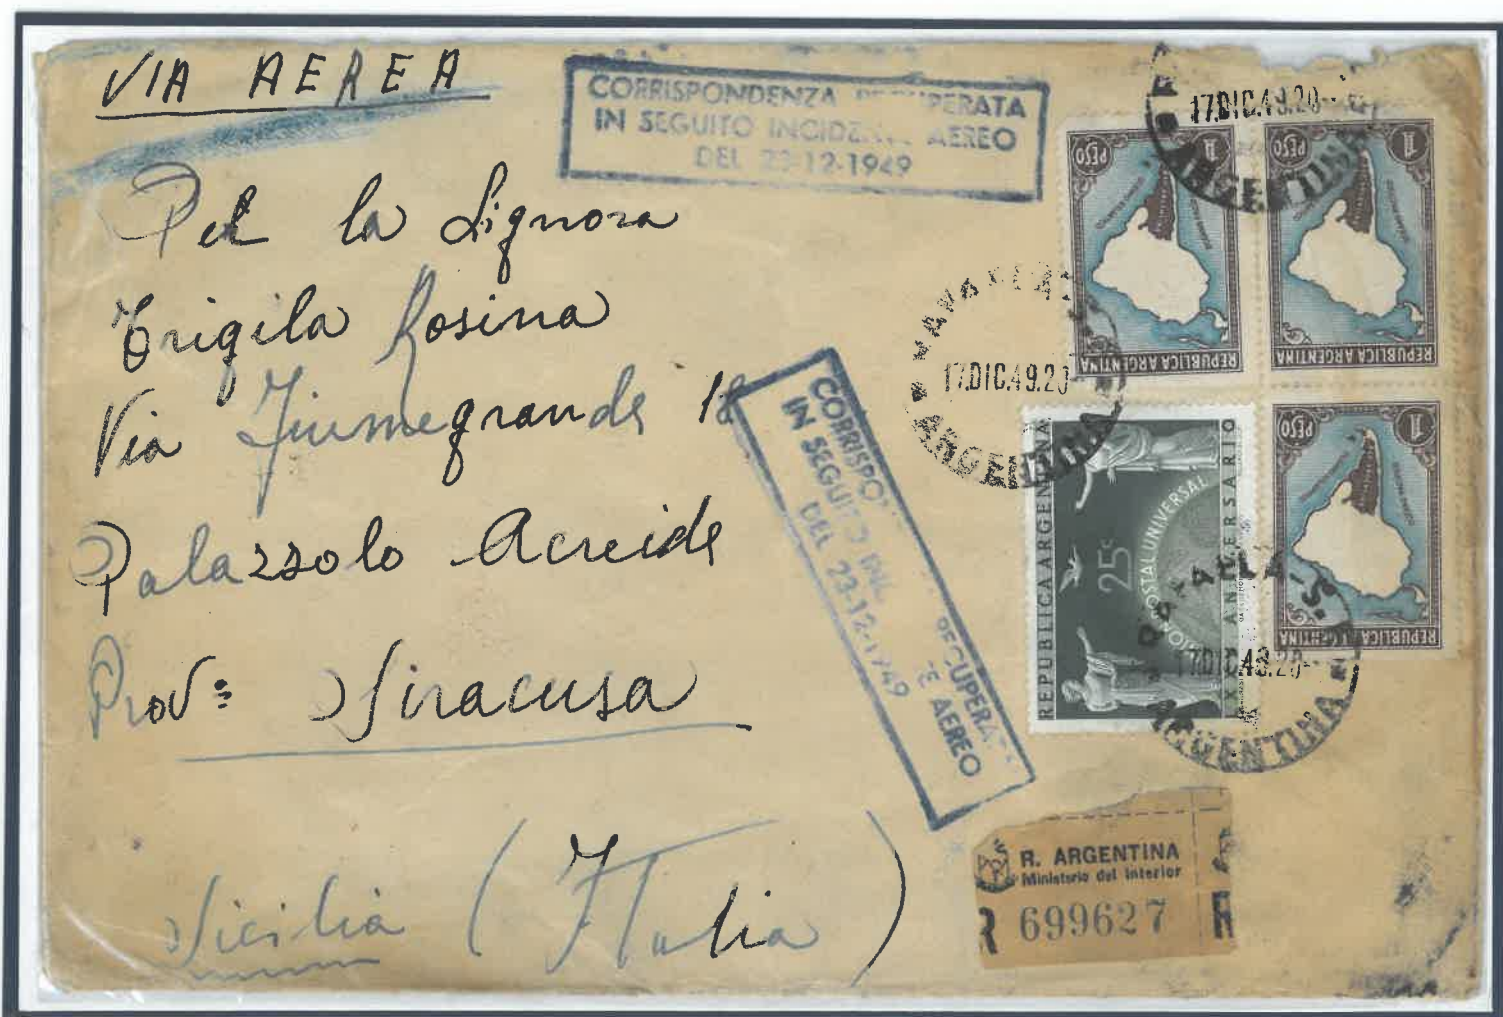 VIA AEREA
CORRISPONDENZA RECUPERATA
IN SEGUITO INCIDENTE AEREO
DEL 23-12-1949
17.DIC.49.20
ARGENTINA
Per la Signora
Trigila Rosina
Via Fiumegrande 18
Palazzolo Acreide
Prov: Siracusa
Sicilia (Italia)
CORRISPO RECUPERA
IN SEGUITO INC TE AEREO
DEL 23-12-1949
17.DIC.49.20
ARGENTINA
1 PESO
REPUBLICA ARGENTINA
1 PESO
REPUBLICA ARGENTINA
1 PESO
REPUBLICA ARGENTINA
REPUBLICA ARGENTINA
25c
POSTAL UNIVERSAL
ANIVERSARIO
RAFAELA-S.
17.DIC.49.20
ARGENTINA
R. ARGENTINA
Ministerio del Interior
R 699627 R